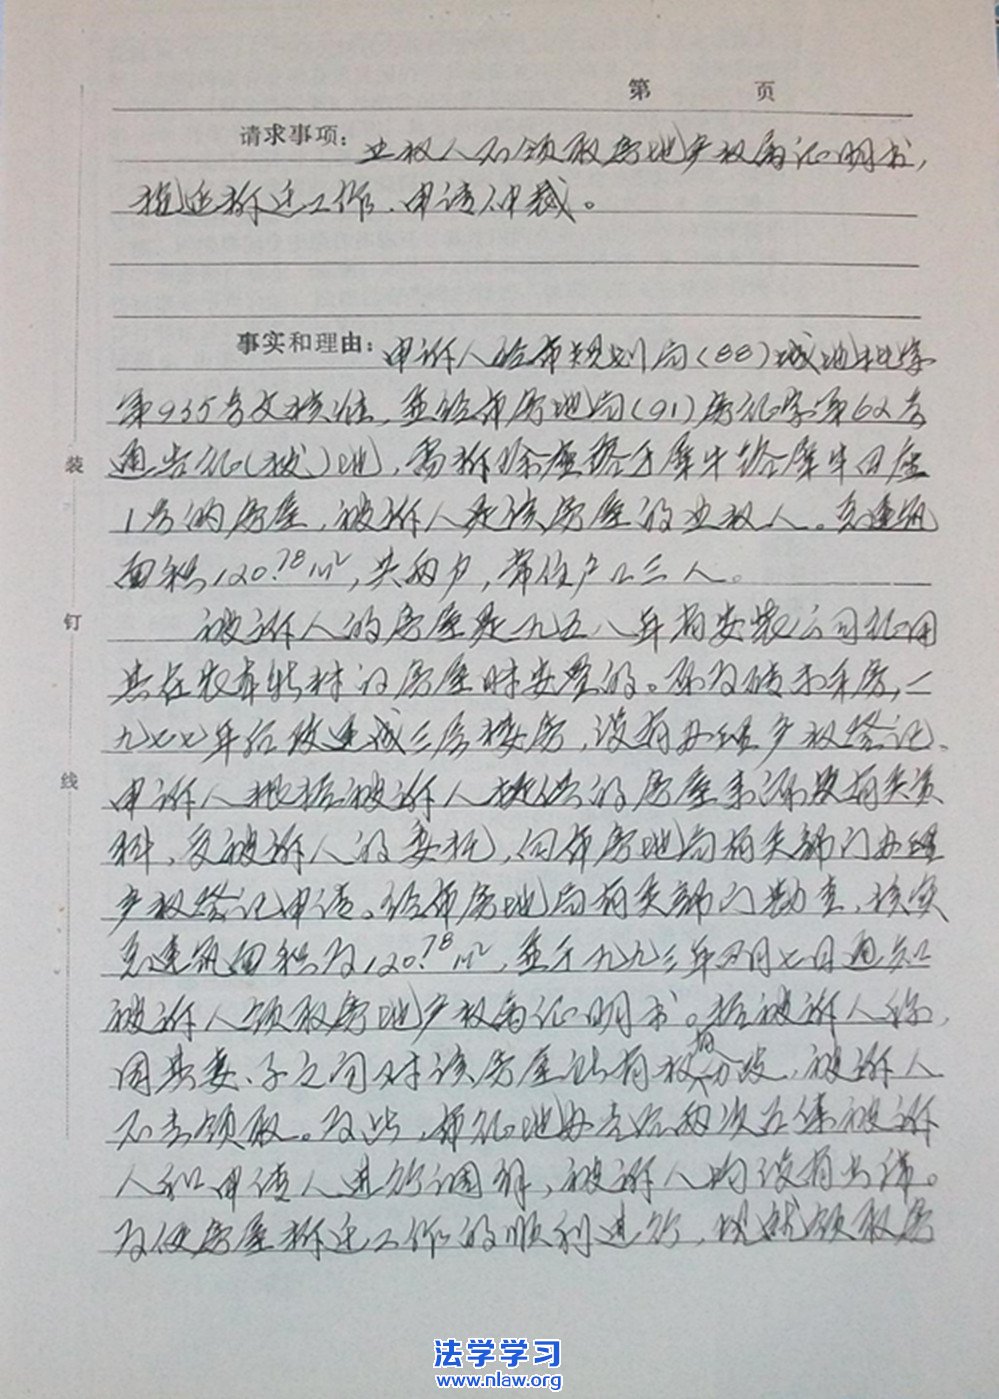 第 页
请求事项：业权人不领取房地产权属证明书，
拖延拆迁工作，申请仲裁。
事实和理由：申诉人经市规划局(88)城地批字
第935号文核准，并经市房地局(91)房征字第62号
通告征(拨)地，需拆除座落于犀牛路犀牛
1号的房屋，被诉人是该房屋的业权人。其建筑
面积120.78m²，共两户，常住户口三人。
被诉人的房屋是一九五八年有安装公司征用
其在农车新村的房屋时安置的。原为砖木平房，一
九七七年后改建成三层楼房，没有办理产权登记，
申诉人根据被诉人提供的房屋来源及有关资
料，受被诉人的委托，向市房地局有关部门办理
产权登记申请。经市房地局有关部门勘查，核实
其建筑面积为120.78m²，并于一九九三年四月七日通知
被诉人领取房地产权属证明书。据被诉人称，
因其妻、子之间对该房屋的占有权有分歧，被诉人
不去领取。为此，市征地办先后两次召集被诉
人和申请人进行调解，被诉人均没有出席。
为使房屋拆迁工作的顺利进行，现就领取房
装
钉
线
法学学习
www.nlaw.org